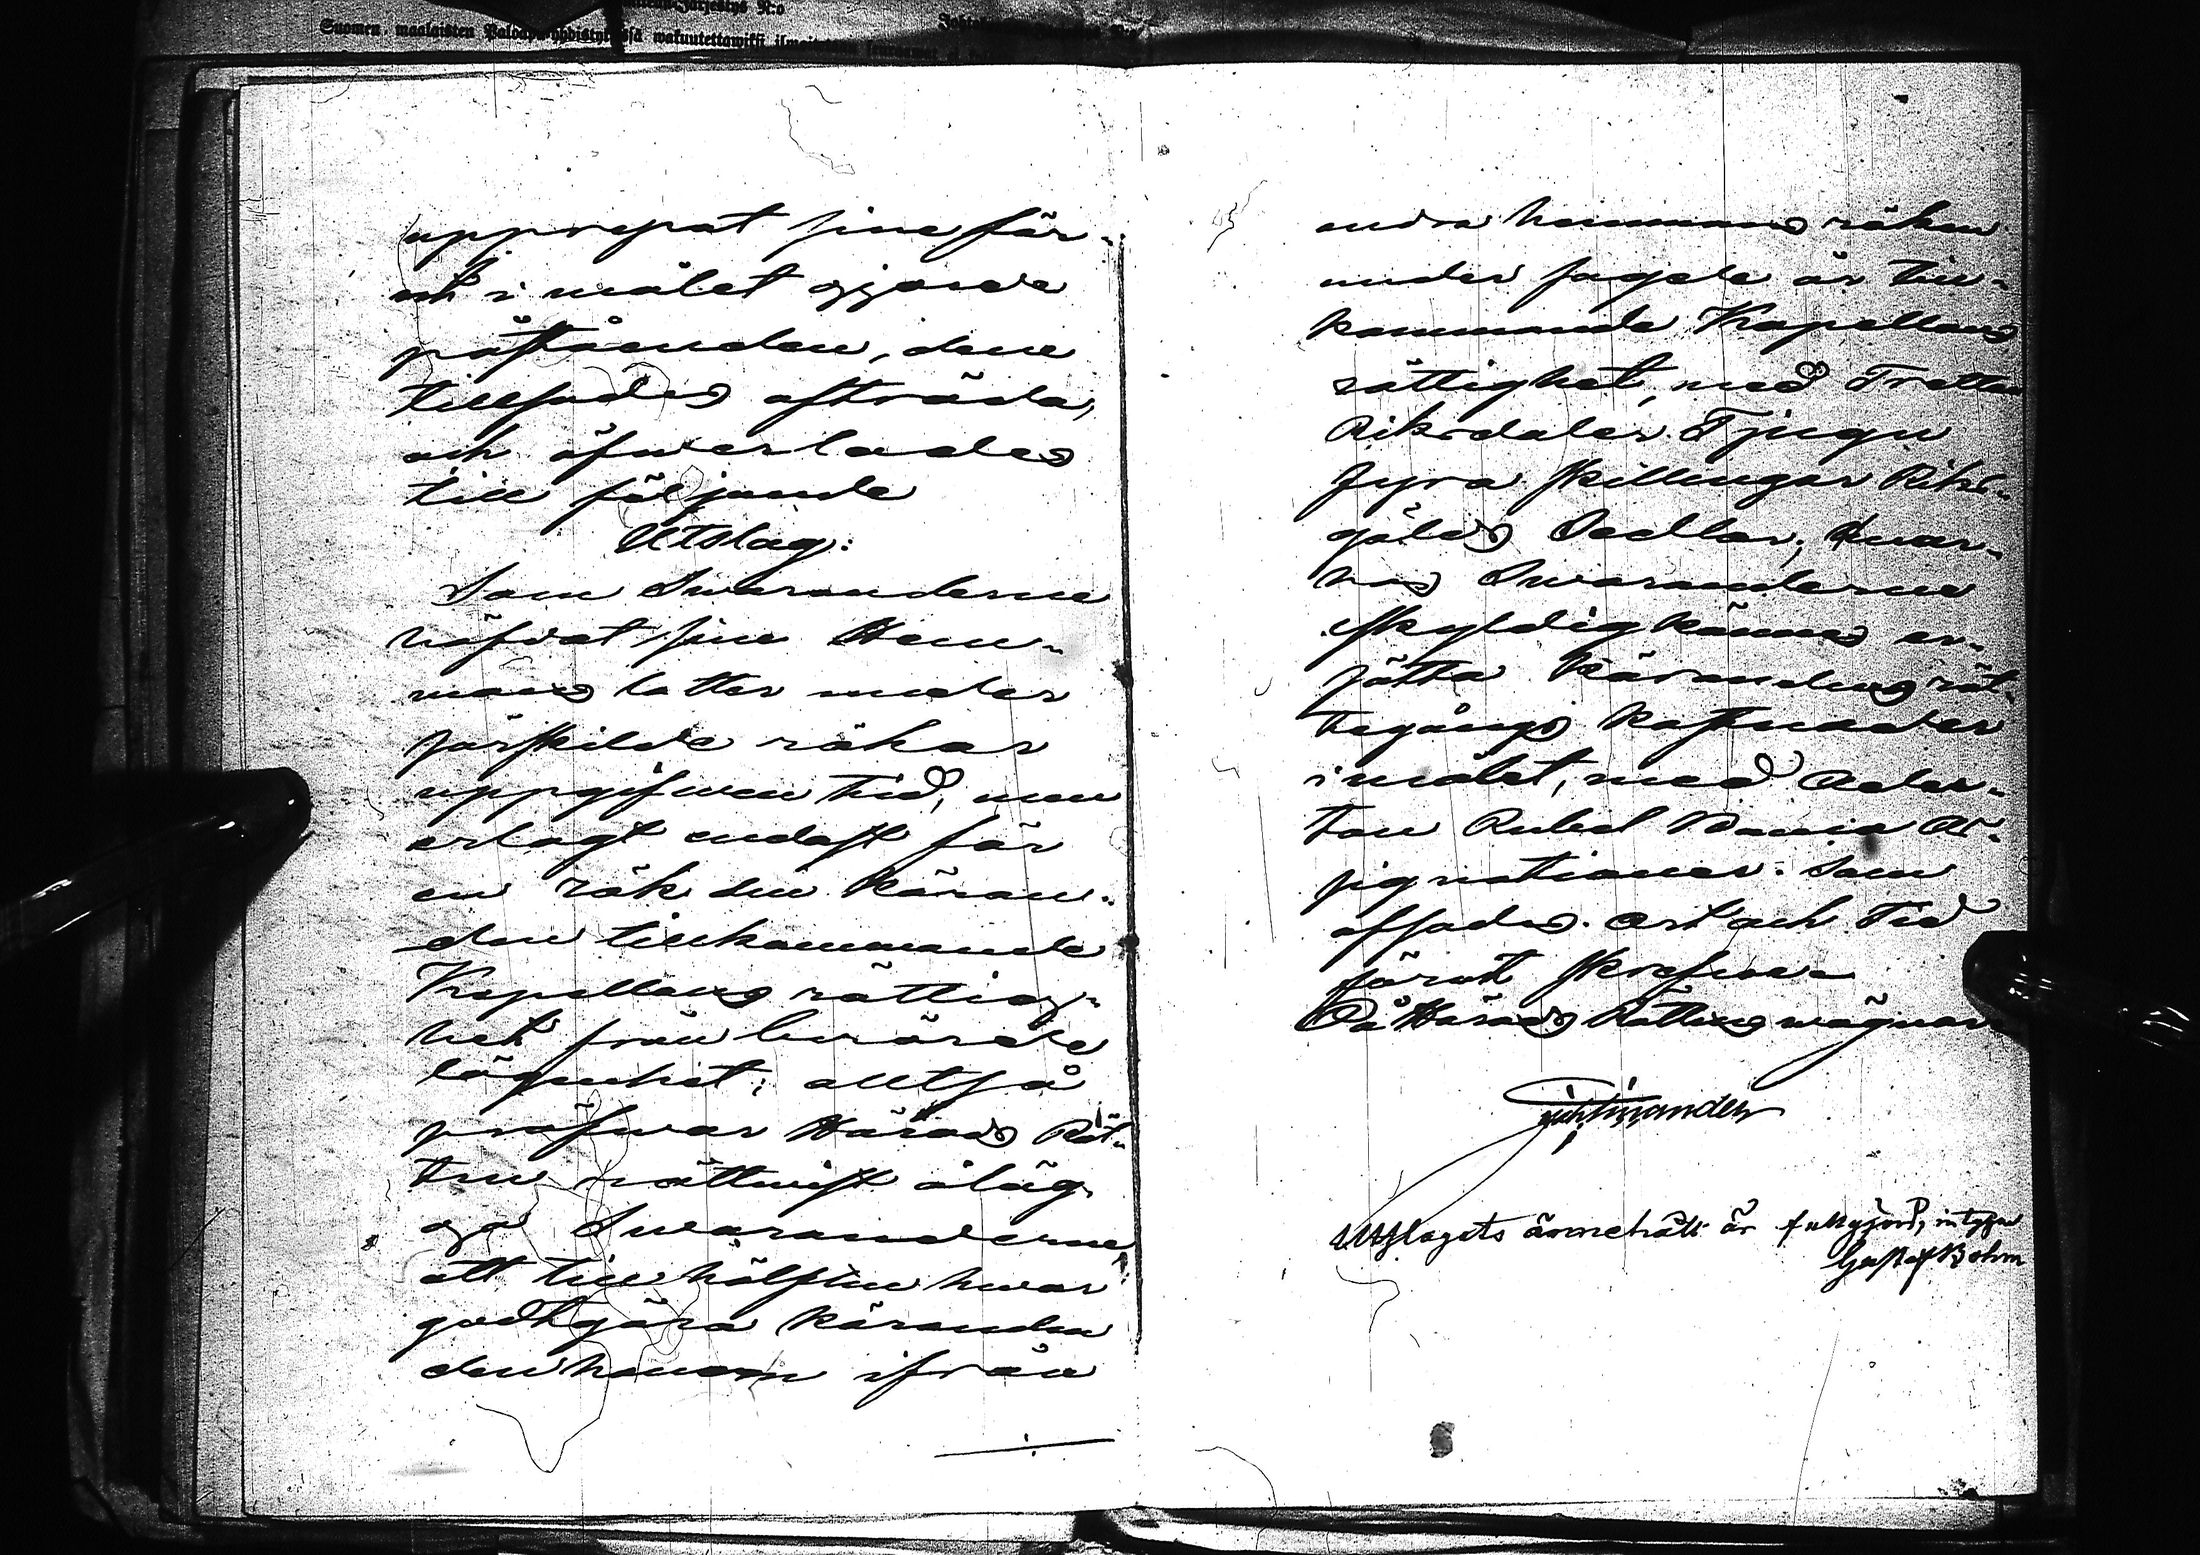 Suomen maalaisten
upprepat sine för-
ut i målet gjorde
påståenden, dene
tillsades afträda,
och öfwerlades
till följande
Utslag:
Som Swaranderne
häfdat sine Hem-
mans lotter under
särskilde rökar
uppgifwen tid, men
erlagt endast för
en rök den Käran-
den tillkommande
Kapellans rättig-
het från berörde
lägenhet; alltså
pröfwar Härads Rät-
ten rättwist åläg-
ga Swaranderne
att till hälften hwar
godtgöra Käranden
den honom ifrån
andra hemmans röken
under sagde år till-
kommande Kapellans
rättighet, med Tretton
Riksdaler Tjugu
fyra skillingar Riks-
gälds Sedlar; hwar-
hos Swaranderne
skyldigkännas er-
sätta Kärandens rät-
tegångs kostnader
i målet, med Ader-
ton Rubel Banco As-
signationer. Som
afsades. Ort och Tid
förut skrefne.
På Härads Rättens wägnar
Utslagets innehåll är fullgjord, intygar
Gustaf Bohm